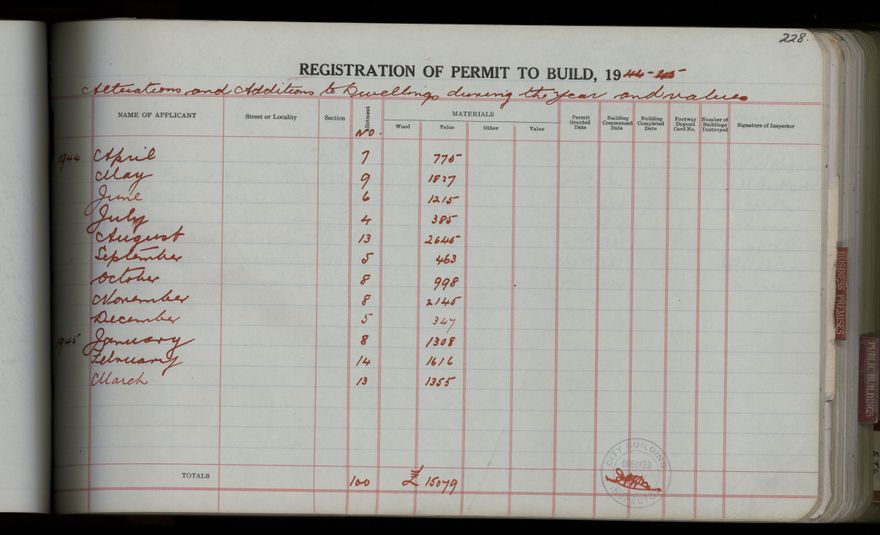 228.
REGISTRATION OF PERMIT TO BUILD, 1944-45
Alterations and Additions to Dwellings during the year and values
NAME OF APPLICANT Street or Locality Section Allotment No. MATERIALS Wood Value Other Value Permit Granted Date Building Commenced Date Building Completed Date Footway Deposit Card No. Number of Buildings Destroyed Signature of Inspector
1944 April 7 775
May 9 1827
June 6 1215
July 4 385
August 13 2645
September 5 463
October 8 998
November 8 2145
December 5 347
1945 January 8 1308
February 14 1616
March 13 1355
TOTALS 100 £ 15079
CITY BUILDING
CHECKED
INSPECTOR
BUSINESS PREMISES
PUBLIC BUILDINGS